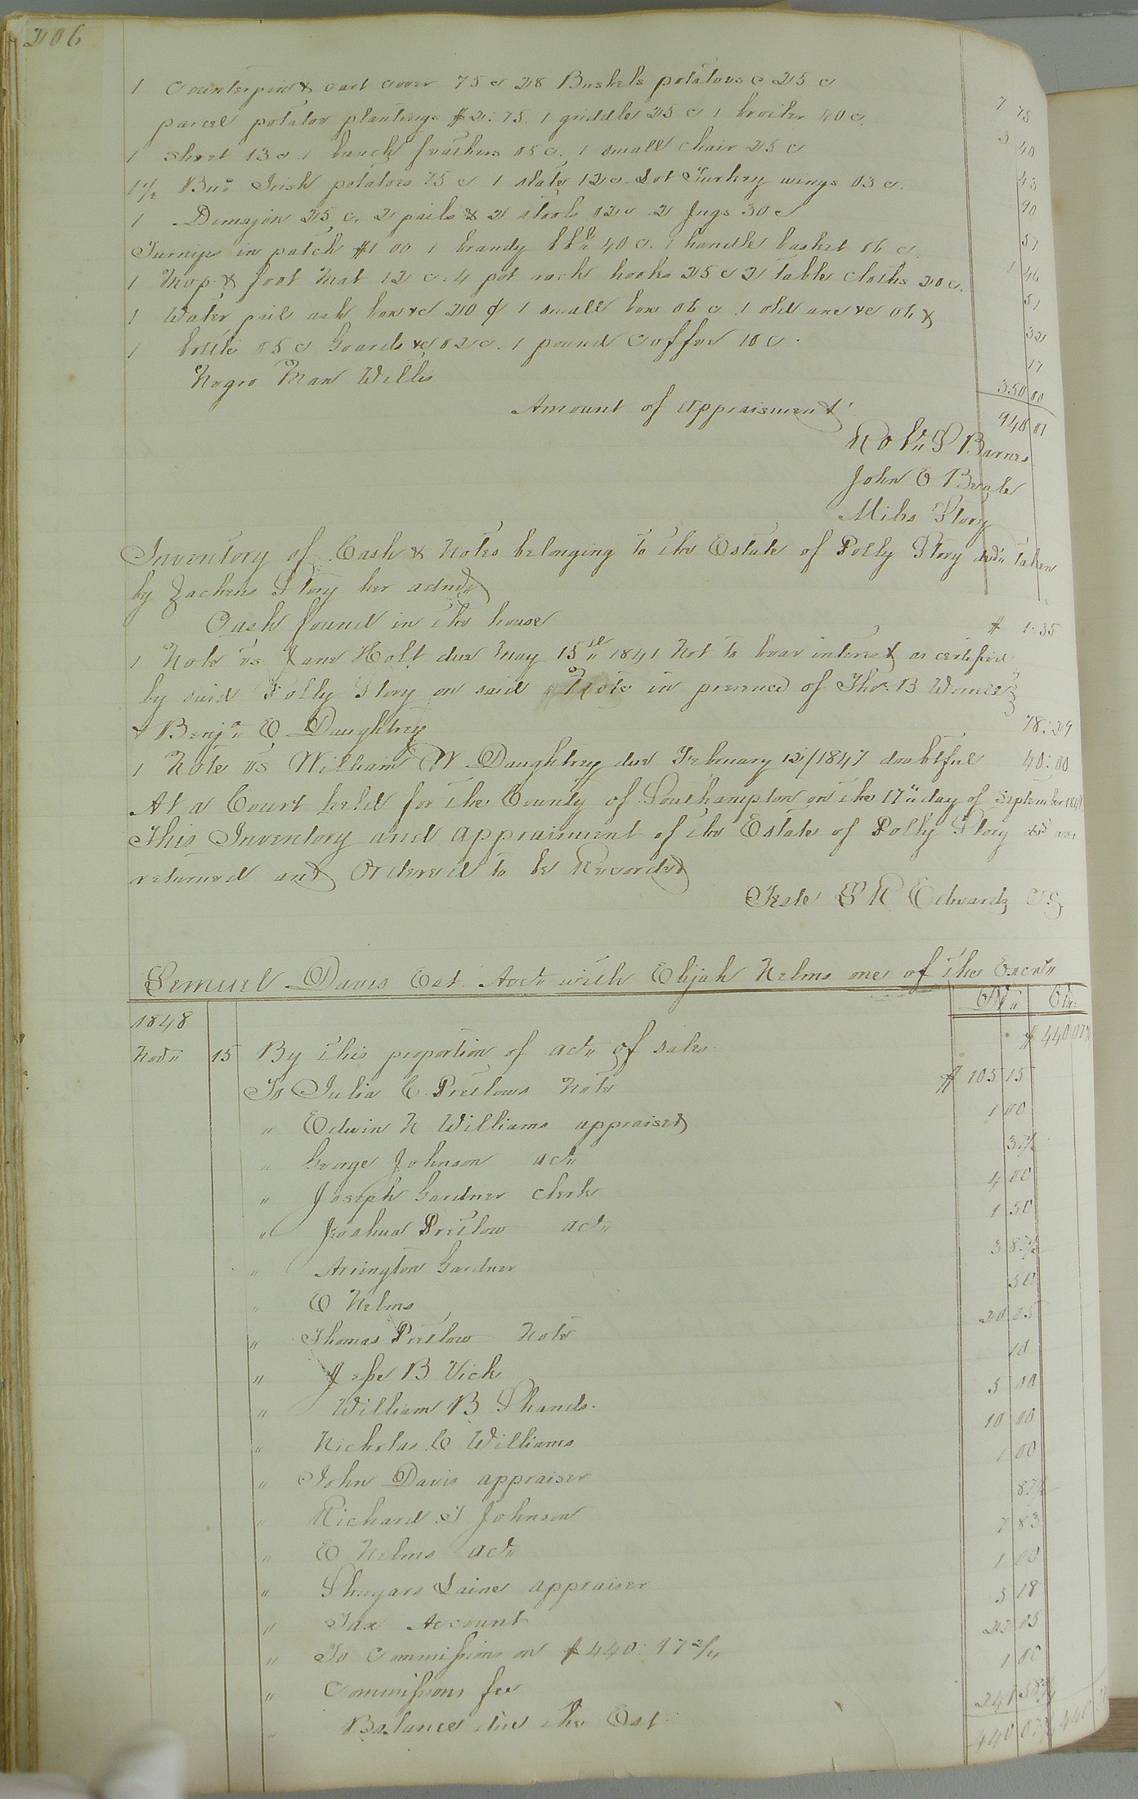 206
1 Counterpin & cart cover 75 c 28 Bushels potatoes @ 25 c 7 75
parcel potatoe plantings $2.75. 1 griddle 25 c 1 broiler 40 c. 3 40
1 Sheet 13 c. 1 bunch feathers 05 c. 1 small chair 25 c 43
1 1/2 Bus Irish potatoes 75 c 1 slate 12 c. Lot Turkey wings 03 c. 90
1 Demajon 25 c. 2 pails & 2 stools 02 c. 2 Jugs 30 c 57
Turnips in patch $1 00 1 brandy bbl 40 c. 1 handle basket 06 c 1 46
1 Mop & foot Mat 12 c. 4 pot rack hooks 25 c 2 table cloths 20 c. 57
1 Water pail ash box &c 20 c 1 small box 06 c 1 old axe &c 06 c 32
1 bottle 05 c Gourds &c 02 c. 1 pound Coffee 10 c. 17
Negro Man Willis 350 00
Amount of Appraisment 940 01
Robt S Barnes
John E Beale
Miles Story
Inventory of Cash & Notes belonging to the Estate of Polly Story decd taken
by Zacheus Story her admr
Cash found in the house $ 1.35
1 Note vs Jane Holt due May 15th 1841 Not to bear interest as certified
by said Polly Story on said Note in presence of Thos. B
& Benjn E Daughtrey 78:29
1 Note vs William W Daughtrey due February 12/1847 doubtful 40:00
At a Court held for the County of Southampton on the 17th day of September
This Inventory and Appraisment of the Estate of Polly Story decd was
returned and Ordered to be Recorded
Teste L R Edwards CC
Lemuel Davis Est. Acct with Elijah Helms one of the Excrs
Dr Cr
1848
Novr 15 By this proportion of act of sales $ 440 07
To Julia E Pretlows Note $ 105 15
" Edwin N Williams appraiser 1 00
" George Johnson act 37 1/2
" Joseph Gardner Clerk 4 00
" Joshua Pretlow act 1 50
" Arrington Gardner 3 87 1/2
" E Helms 50
" Thomas Pretlow Note 20 05
" Jesse B Vick 10
" William B Shands 5 00
" Nicholas C Williams 10 00
" John Davis appraiser 1 00
" Richard T Johnson 87 1/2
" E Helms act 7 83
" Shugars Laine appraiser 1 00
" Tax Account 5 18
" To Commissions on $440 97 3/4 05
" Commissions fee 1 00
" Balance due the Est